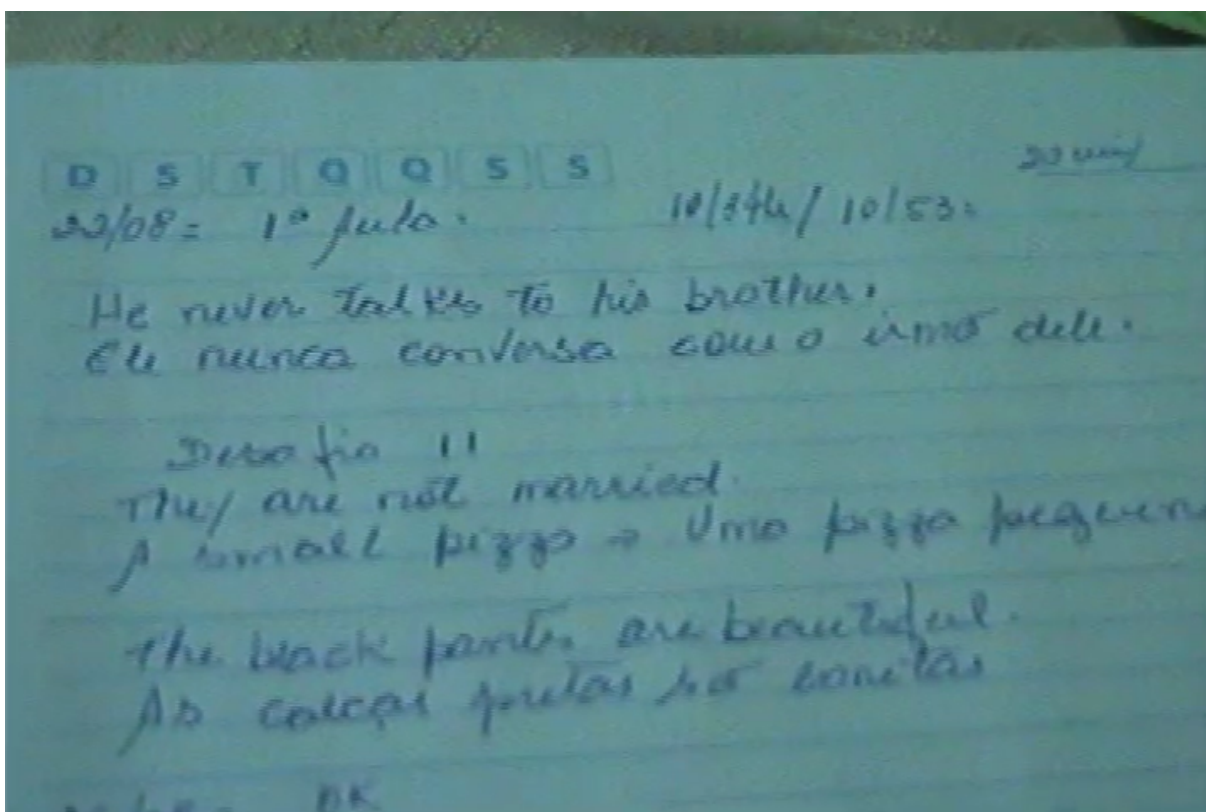 D S T Q Q S S
22/08 = 1º 10/53.
He never talks to his brother.
Ele nunca conversa com o irmõ dele.
Desafio 11
They are not married.
A small pizza → Uma pizza pequena
The black pants are beautiful.
As calças pretas sõ bonitas
OK